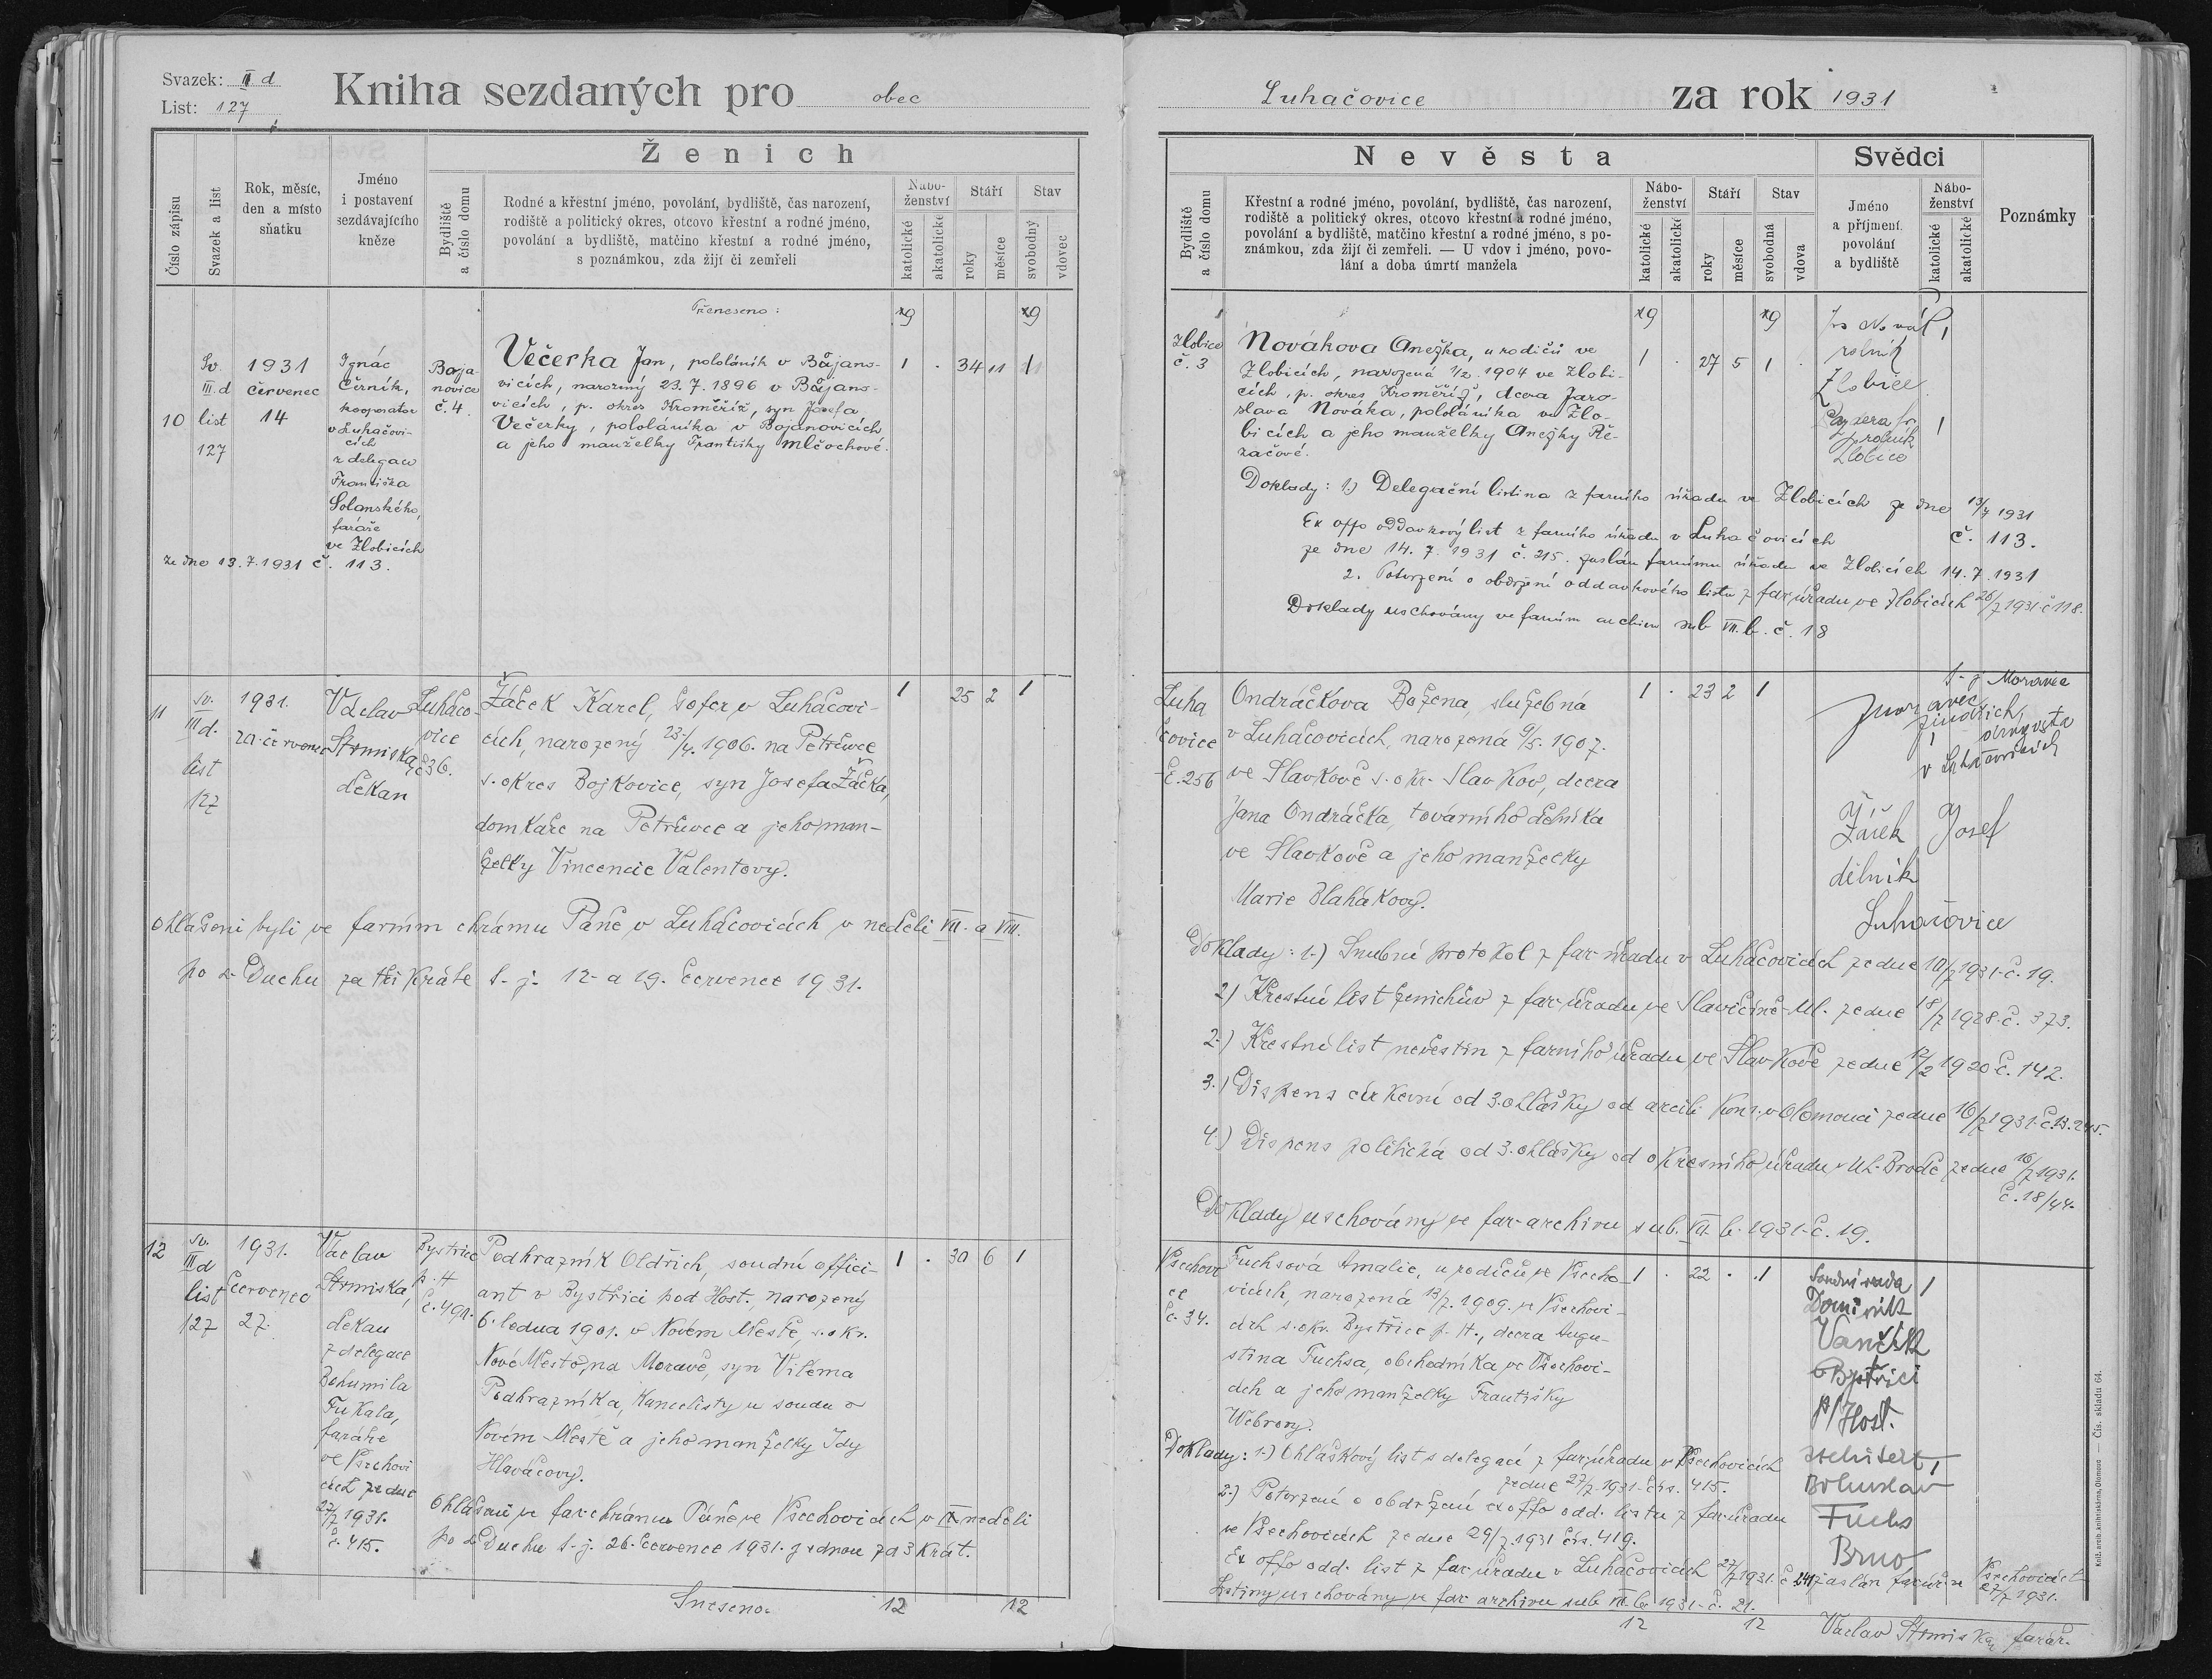 Svazek: III d
List: 127
Kniha sezdaných pro obec
Číslo zápisu
Svazek a list
Rok, měsíc,
den a místo
sňatku
Jméno
i postavení
sezdávajícího
kněze
Ženich
Bydliště
a číslo domu
Rodné a křestní jméno, povolání, bydliště, čas narození,
rodiště a politický okres, otcovo křestní a rodné jméno,
povolání a bydliště, matčino křestní a rodné jméno,
s poznámkou, zda žijí či zemřeli
Nábo-
ženství
katolické
akatolické
Stáří
roky
měsíce
Stav
svobodný
vdovec
Přeneseno: 9 9
10
Sv.
III. d
list
127
1931
červenec
14
Ignác
Černík,
kooperator
v Luhačovi-
cích
z delegace
Františka
Solanského,
faráře
ve Zlobicích
ze dne 13.7.1931 č. 113.
Boja-
novice
č. 4.
Večerka Jan, pololáník v Bojano-
vicích, narozený 23.7.1896 v Bojano-
vicích, p. okres Kroměříž, syn Josefa
Večerky, pololáníka v Bojanovicích
a jeho manželky Františky Mlčochové.
1 . 34 11 1
11
sv.
III d.
list
127
1931.
20. červenec
Václav
Strmiska,
děkan
Luhačo-
vice
č. 36.
Žáček Karel, šofer v Luhačovi-
cích, narozený 23/4. 1906. na Petrůvce
s. okres Bojkovice, syn Josefa Žáčka,
domkaře na Petrůvce a jeho man-
želky Vincencie Valentovy.
1 25 2 1
Ohlášeni byli ve farním chrámu Páně v Luhačovicích v neděli VII. a VIII.
po s. Duchu za tři kráte t. j. 12. a 19. července 1931.
12
sv.
III d
list
127
1931.
červenec
27.
Václav
Strmiska,
děkan
z delegace
Bohumila
Fukala,
faráře
ve Všechovi
cích ze dne
27/7 1931.
č. 415.
Bystřice
p. H
č. 491.
Podhrazník Oldřich, soudní offici-
ant v Bystřici pod Host., narozený
6. ledna 1901. v Novém Městě, s. okr.
Nové Město na Moravě, syn Viléma
Podhrazníka, kancelisty u soudu v
Novém Městě a jeho manželky Idy
Hlaváčovy.
1 . 30 6 1
Ohlášení ve far. chrámu Páně ve Všechovicích v IX. neděli
po s. Duchu t. j. 26. července 1931. jednou za 3 krát.
Sneseno. 12 12
Luhačovice za rok 1931
Nevěsta
Bydliště
a číslo domu
Křestní a rodné jméno, povolání, bydliště, čas narození,
rodiště a politický okres, otcovo křestní a rodné jméno,
povolání a bydliště, matčino křestní a rodné jméno, s po-
známkou, zda žijí či zemřeli. — U vdov i jméno, povo-
lání a doba úmrtí manžela
Nábo-
ženství
katolické
akatolické
Stáří
roky
měsíce
Stav
svobodná
vdova
Svědci
Jméno
a příjmení
povolání
a bydliště
Nábo-
ženství
katolické
akatolické
Poznámky
9 9
Zlobice
č. 3
Nováková Anežka, u rodičů ve
Zlobicích, narozená 1/2. 1904 ve Zlobi-
cích, p. okres Kroměříž, dcera Jaro-
slava Nováka, pololáníka ve Zlo-
bicích a jeho manželky Anežky Ře-
začové.
1 . 27 5 1 .
Novák 1
rolník
Zlobice
1
rolník
Zlobice
Doklady: 1.) Delegační listina z farního úřadu ve Zlobicích ze dne 13/7 1931
č. 113.
Ex offo oddavkový list z farního úřadu v Luhačovicích
ze dne 14. 7. 1931 č. 215. zaslán farnímu úřadu ve Zlobicích 14. 7. 1931
2. Potvrzení o obdržení oddavkového listu z far. úřadu ve Zlobicích 26/7 1931 č 118.
Doklady uschovány ve farním archivu sub VII. b. č. 18
Luha
čovice
č. 256
Ondráčkova Božena, služebná
v Luhačovicích, narozená 9/5. 1907.
ve Slavkově s. okr. Slavkov, dcera
Jana Ondráčka, továrního dělníka
ve Slavkově a jeho manželky
Marie Blahákovy.
1 . 23 2 1
t. j. Moravec
Moravec
Jindřich,
drogista
v Luhačovicích
1
Žáček Josef
dělník
Luhačovice
Doklady: 1.) Snubní protokol z far. úřadu v Luhačovicích ze dne 10/7 1931. č. 19.
2) Křestní list ženichův z far. úřadu ve Slavičíně-Ml. ze dne 18/7 1928. č. 373.
2.) Křestní list nevěstin z farního úřadu ve Slavkově ze dne 12/2 1920 č. 142.
3.) Dispens církevní od 3. ohlášky od arcib. kons. v Olomouci ze dne 16/7 1931. č. 13.245.
4.) Dispens politická od 3. ohlášky od okresního úřadu v Uh. Brodě ze dne 16/7 1931.
č. 18/44.
Doklady uschovány ve far. archivu sub. VII. b. 1931. č. 19.
Všechovi
ce
č. 34.
Fuchsová Amalie, u rodičů ve Všecho-
vicích, narozená 13/7. 1909. ve Všechovi-
cích s. okr. Bystřice p. H., dcera Augu-
stina Fuchsa, obchodníka ve Všechovi-
cích a jeho manželky Františky
Webrovy.
1 . 22 . 1
Soudní rada 1
Dominik
Vančík
v Bystřici
p/Host.
1
Bohuslav
Fuchs
Brno
Doklady: 1.) Ohláškový list s delegací z far. úřadu v Všechovicích
ze dne 27/7. 1931. čís. 415.
2.) Potvrzení o obdržení ex offo odd. listu z far. úřadu
ve Všechovicích ze dne 29/7. 1931 čís. 419.
Ex offo odd. list z far. úřadu v Luhačovicích 27/7 1931. č 241 zaslán far. úř. ve Všechovicích
27/7 1931.
Listiny uschovány ve far. archivu sub VII. b. 1931. č. 21.
12 12
Václav Strmiska, farář.
Knž. arcib. knihtiskárna, Olomouc — Čís. skladu 64.